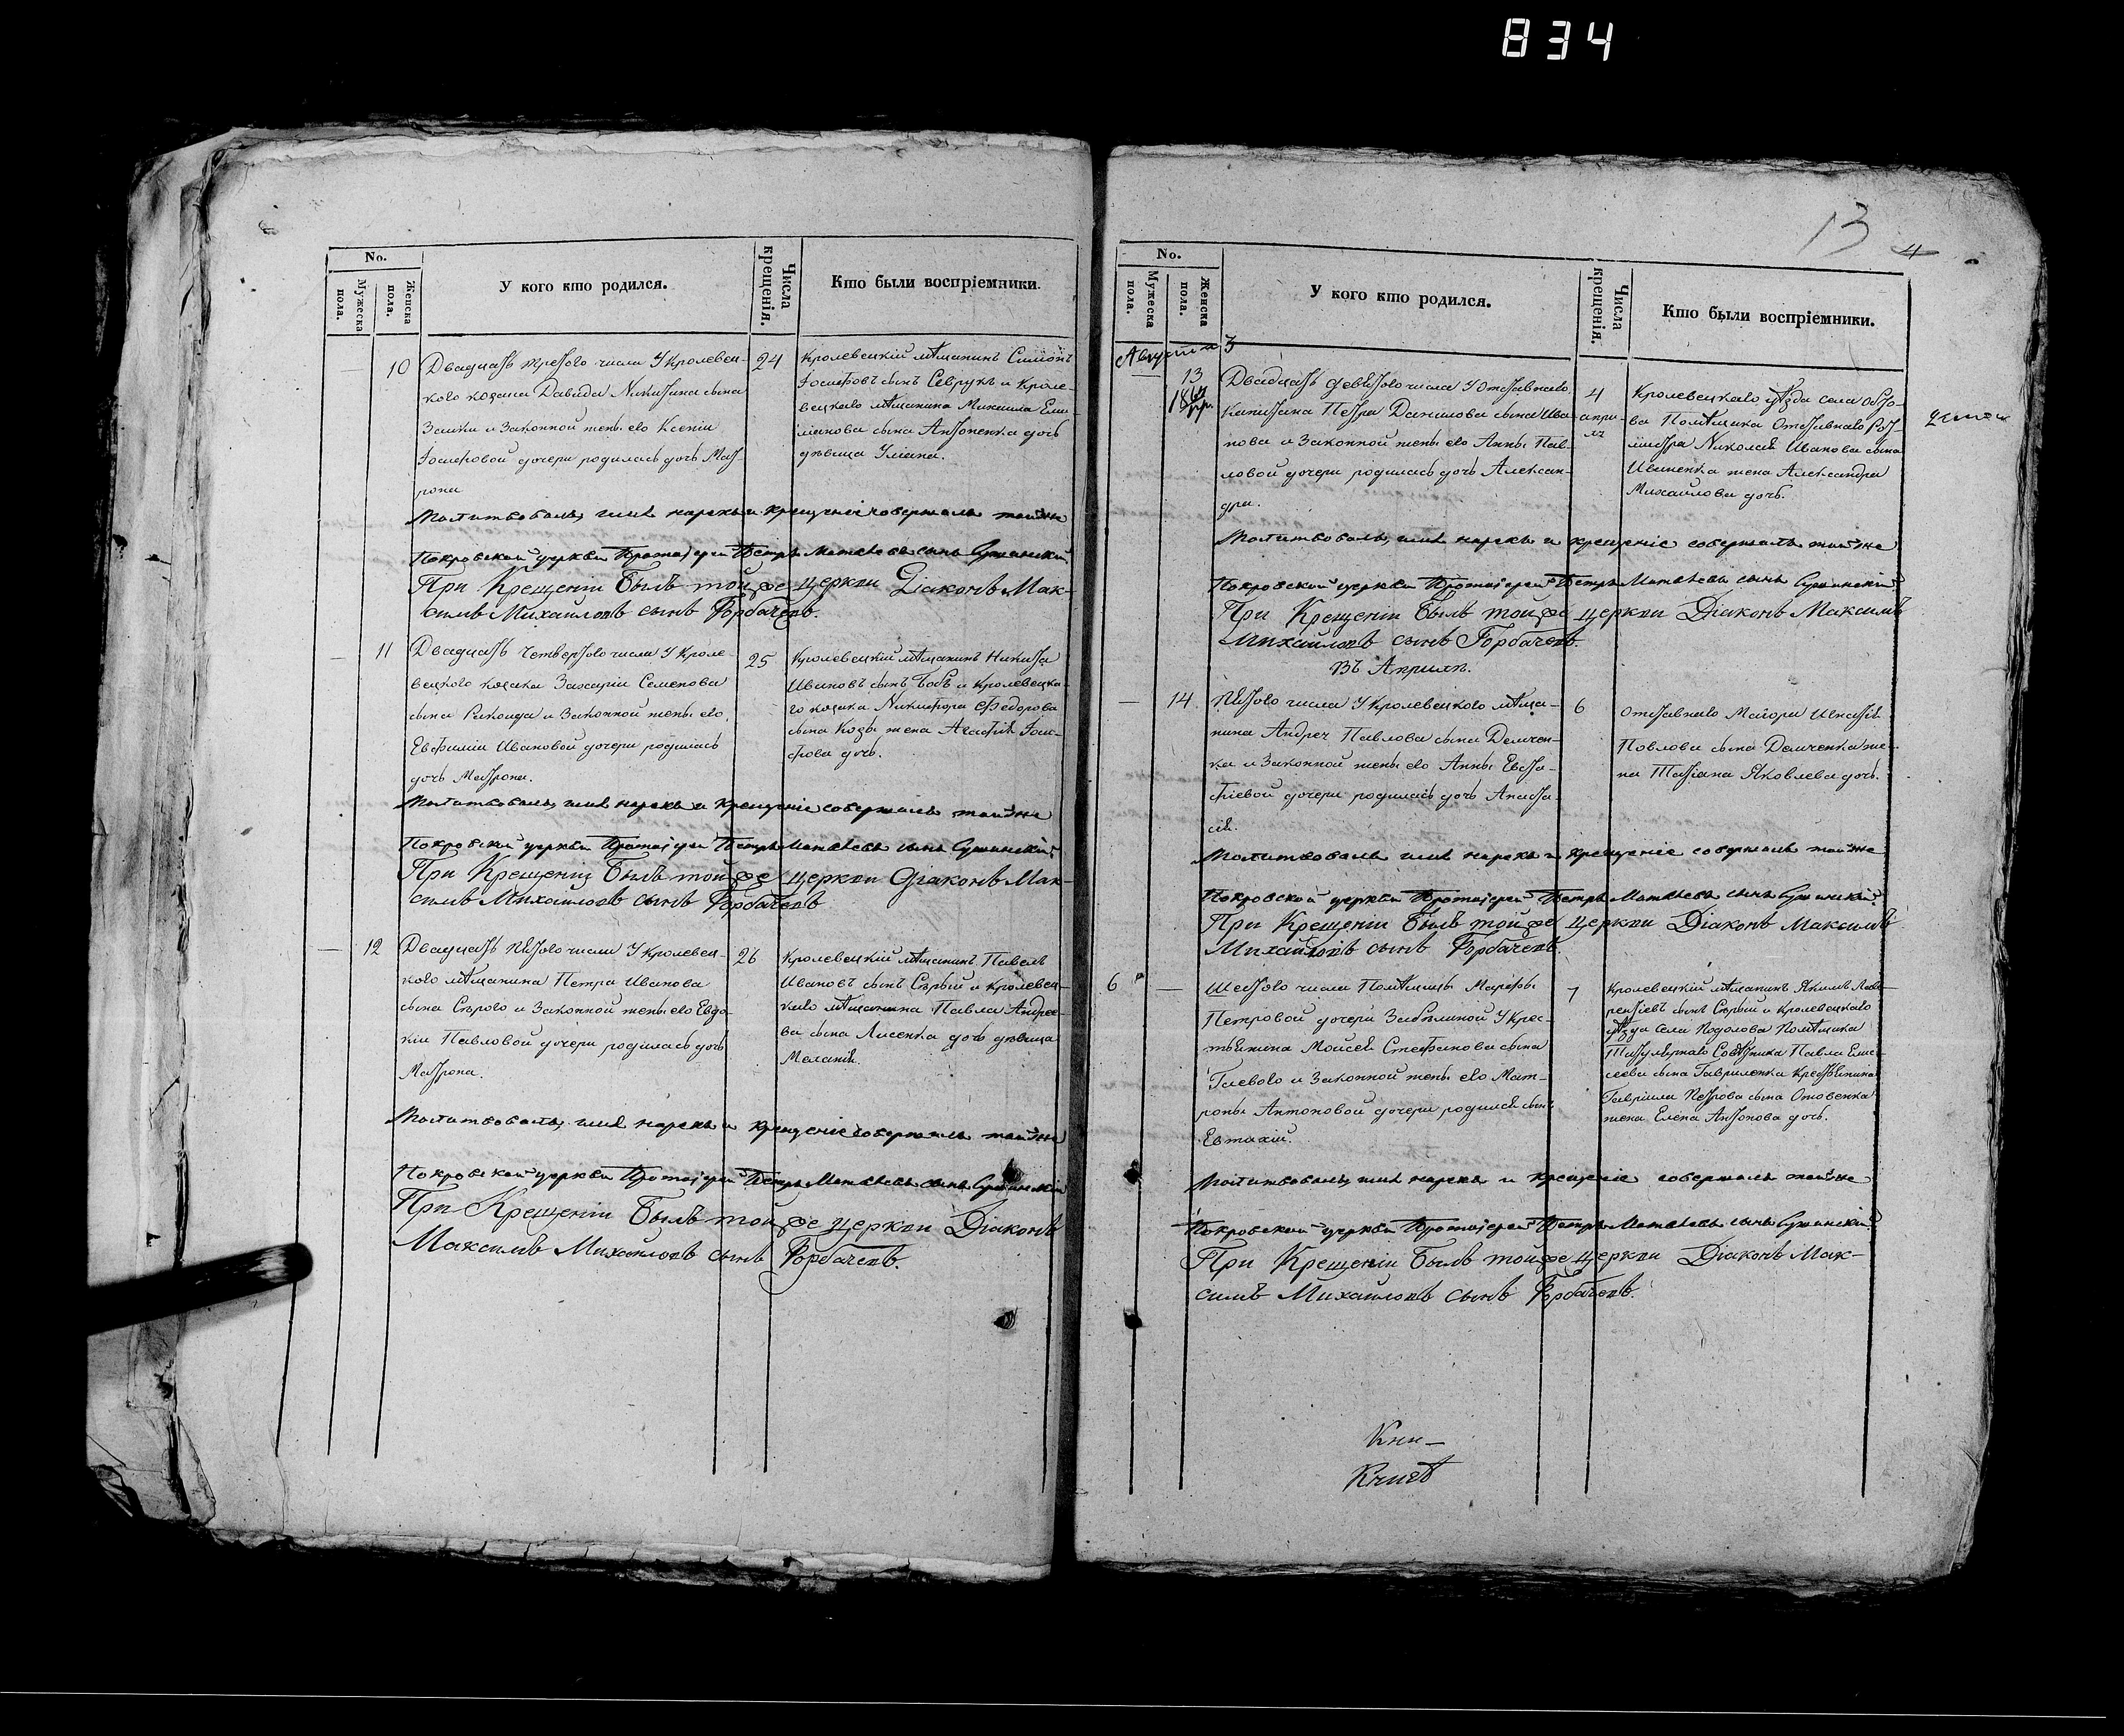 834
No.
Мужеска пола.
Женска пола.
У кого кто родился.
Числа крещенія.
Кто были воспріемники.
10
Двадцать третьго числа У Кролевец-
кого козака Давида Никитина сына
Заики и Законной жены его Ксеніи
Іосифовой дочери родилась дочь Мат-
рона
24
Кролевецкій мѣщанинъ Симіонъ
Іосифовъ сынъ Севрукъ и Кроле-
вецкаго мѣщанина Михаила Еми-
ліанова сына Антоненка дочь
дѣвица Уліана.
Молитвовалъ, имя нарекъ и крещеніе совершалъ тойже
Покровской церкви Протоіерей Петръ Матвѣевъ сынъ
При Крещеніи Былъ тойже церкви Діаконъ Мак-
симъ Михайловъ сынъ Горбачевъ.
11
Двадцать четвертого числа У Кроле-
вецкого козака Захаріи Семенова
сына и Законной жены его
Евфиміи Ивановой дочери родилась
дочь Матрона.
25
Кролевецкій мѣщанинъ Никита
Ивановъ сынъ Бобъ и Кролевецка-
го козака Никифора Федорова
сына Козы жена Агафія Іоси-
фова дочь.
Молитвовалъ, имя нарекъ и крещеніе совершалъ тойже
Покровской церкви Протоіерей Петръ Матвѣевъ сынъ
При Крещеніи Былъ тойже церкви Діаконъ Мак-
симъ Михайловъ сынъ Горбачевъ
12
Двадцать пятого числа У Кролевец-
кого мѣщанина Петра Иванова
сына Сѣрого и Законной жены его Евдо-
кіи Павловой дочери родилась дочь
Матрона.
26
Кролевецкій мѣщанинъ Павелъ
Ивановъ сынъ Сѣрый и Кролевец-
каго мѣщанина Павла Андрее-
ва сына Лисенка дочь дѣвица
Меланія.
Молитвовалъ, имя нарекъ и крещеніе совершалъ тойже
Покровской церкви Протоіерей Петръ Матвѣевъ сынъ
При Крещеніи Былъ тойже церкви Діаконъ
Максимъ Михайловъ сынъ Горбачевъ.
13 4
No.
Мужеска пола.
Женска пола.
У кого кто родился.
Числа крещенія.
Кто были воспріемники.
Августа 3
13
Двадцать девятого числа У Отставнаго
Капитана Петра Данилова сына Ива-
нова и Законной жены его Анны Пав-
ловой дочери родилась дочь Алексан-
дра.
4
апре-
ля
Кролевецкаго уѣзда села
Помѣщика Отставнаго Рот-
мистра Николая Иванова сына
Ивненка жена Александра
Михайлова дочь.
Молитвовалъ, имя нарекъ и крещеніе совершалъ тойже
Покровской церкви Протоіерей Петръ Матвѣевъ сынъ
При Крещеніи Былъ тойже церкви Діаконъ Максимъ
Михайловъ сынъ Горбачевъ.
Въ Априлѣ.
14
Пятого числа У Кролевецкого мѣща-
нина Андрея Павлова сына Демчен-
ка и Законной жены его Анны Евста-
фіевой дочери родилась дочь Анаста-
сія.
6
Отставнаго Майора Игнатія
Павлова сына Демченка же-
на Татіана Яковлева дочь.
Молитвовалъ имя нарекъ и крещеніе совершалъ тойже
Покровской церкви Протоіерей Петръ Матвѣевъ сынъ
При Крещеніи Былъ тойже церкви Діаконъ Максимъ
Михайловъ сынъ Горбачевъ.
6
Шестого числа Помѣщицы Марфы
Петровой дочери Забѣлиной У Крес-
тьянина Моисея Стефанова сына
Гаевого и Законной жены его Мат-
роны Антоновой дочери родился сынъ
Евтихій.
7
Кролевецкій мѣщанинъ Якимъ Лав-
рентіевъ сынъ Сѣрый и Кролевецкаго
уѣзда села Подолова Помѣщика
Титулярнаго Совѣтника Павла Елис-
еева сына Гавриленка Крестьянина
Гавріила Петрова сына
жена Елена Антонова дочь.
Молитвовалъ, имя нарекъ и крещеніе совершалъ тойже
Покровской церкви Протоіерей Петръ Матвѣевъ сынъ
При Крещеніи Былъ тойже церкви Діаконъ Мак-
симъ Михайловъ сынъ Горбачевъ.